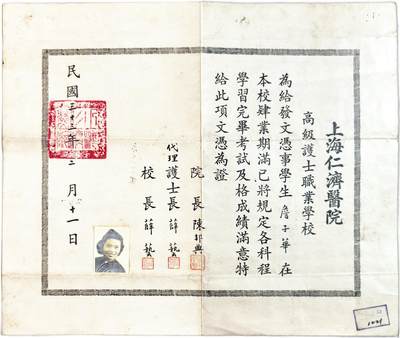 上海仁濟醫院
高級護士職業學校
為給發文憑事學生詹子華在
本校肄業期滿已將規定各科程
學習完畢考試及格成績滿意特
給此項文憑為證
院長陳邦典
代理護士長薛藝
校長薛藝
民國三十年二月十一日